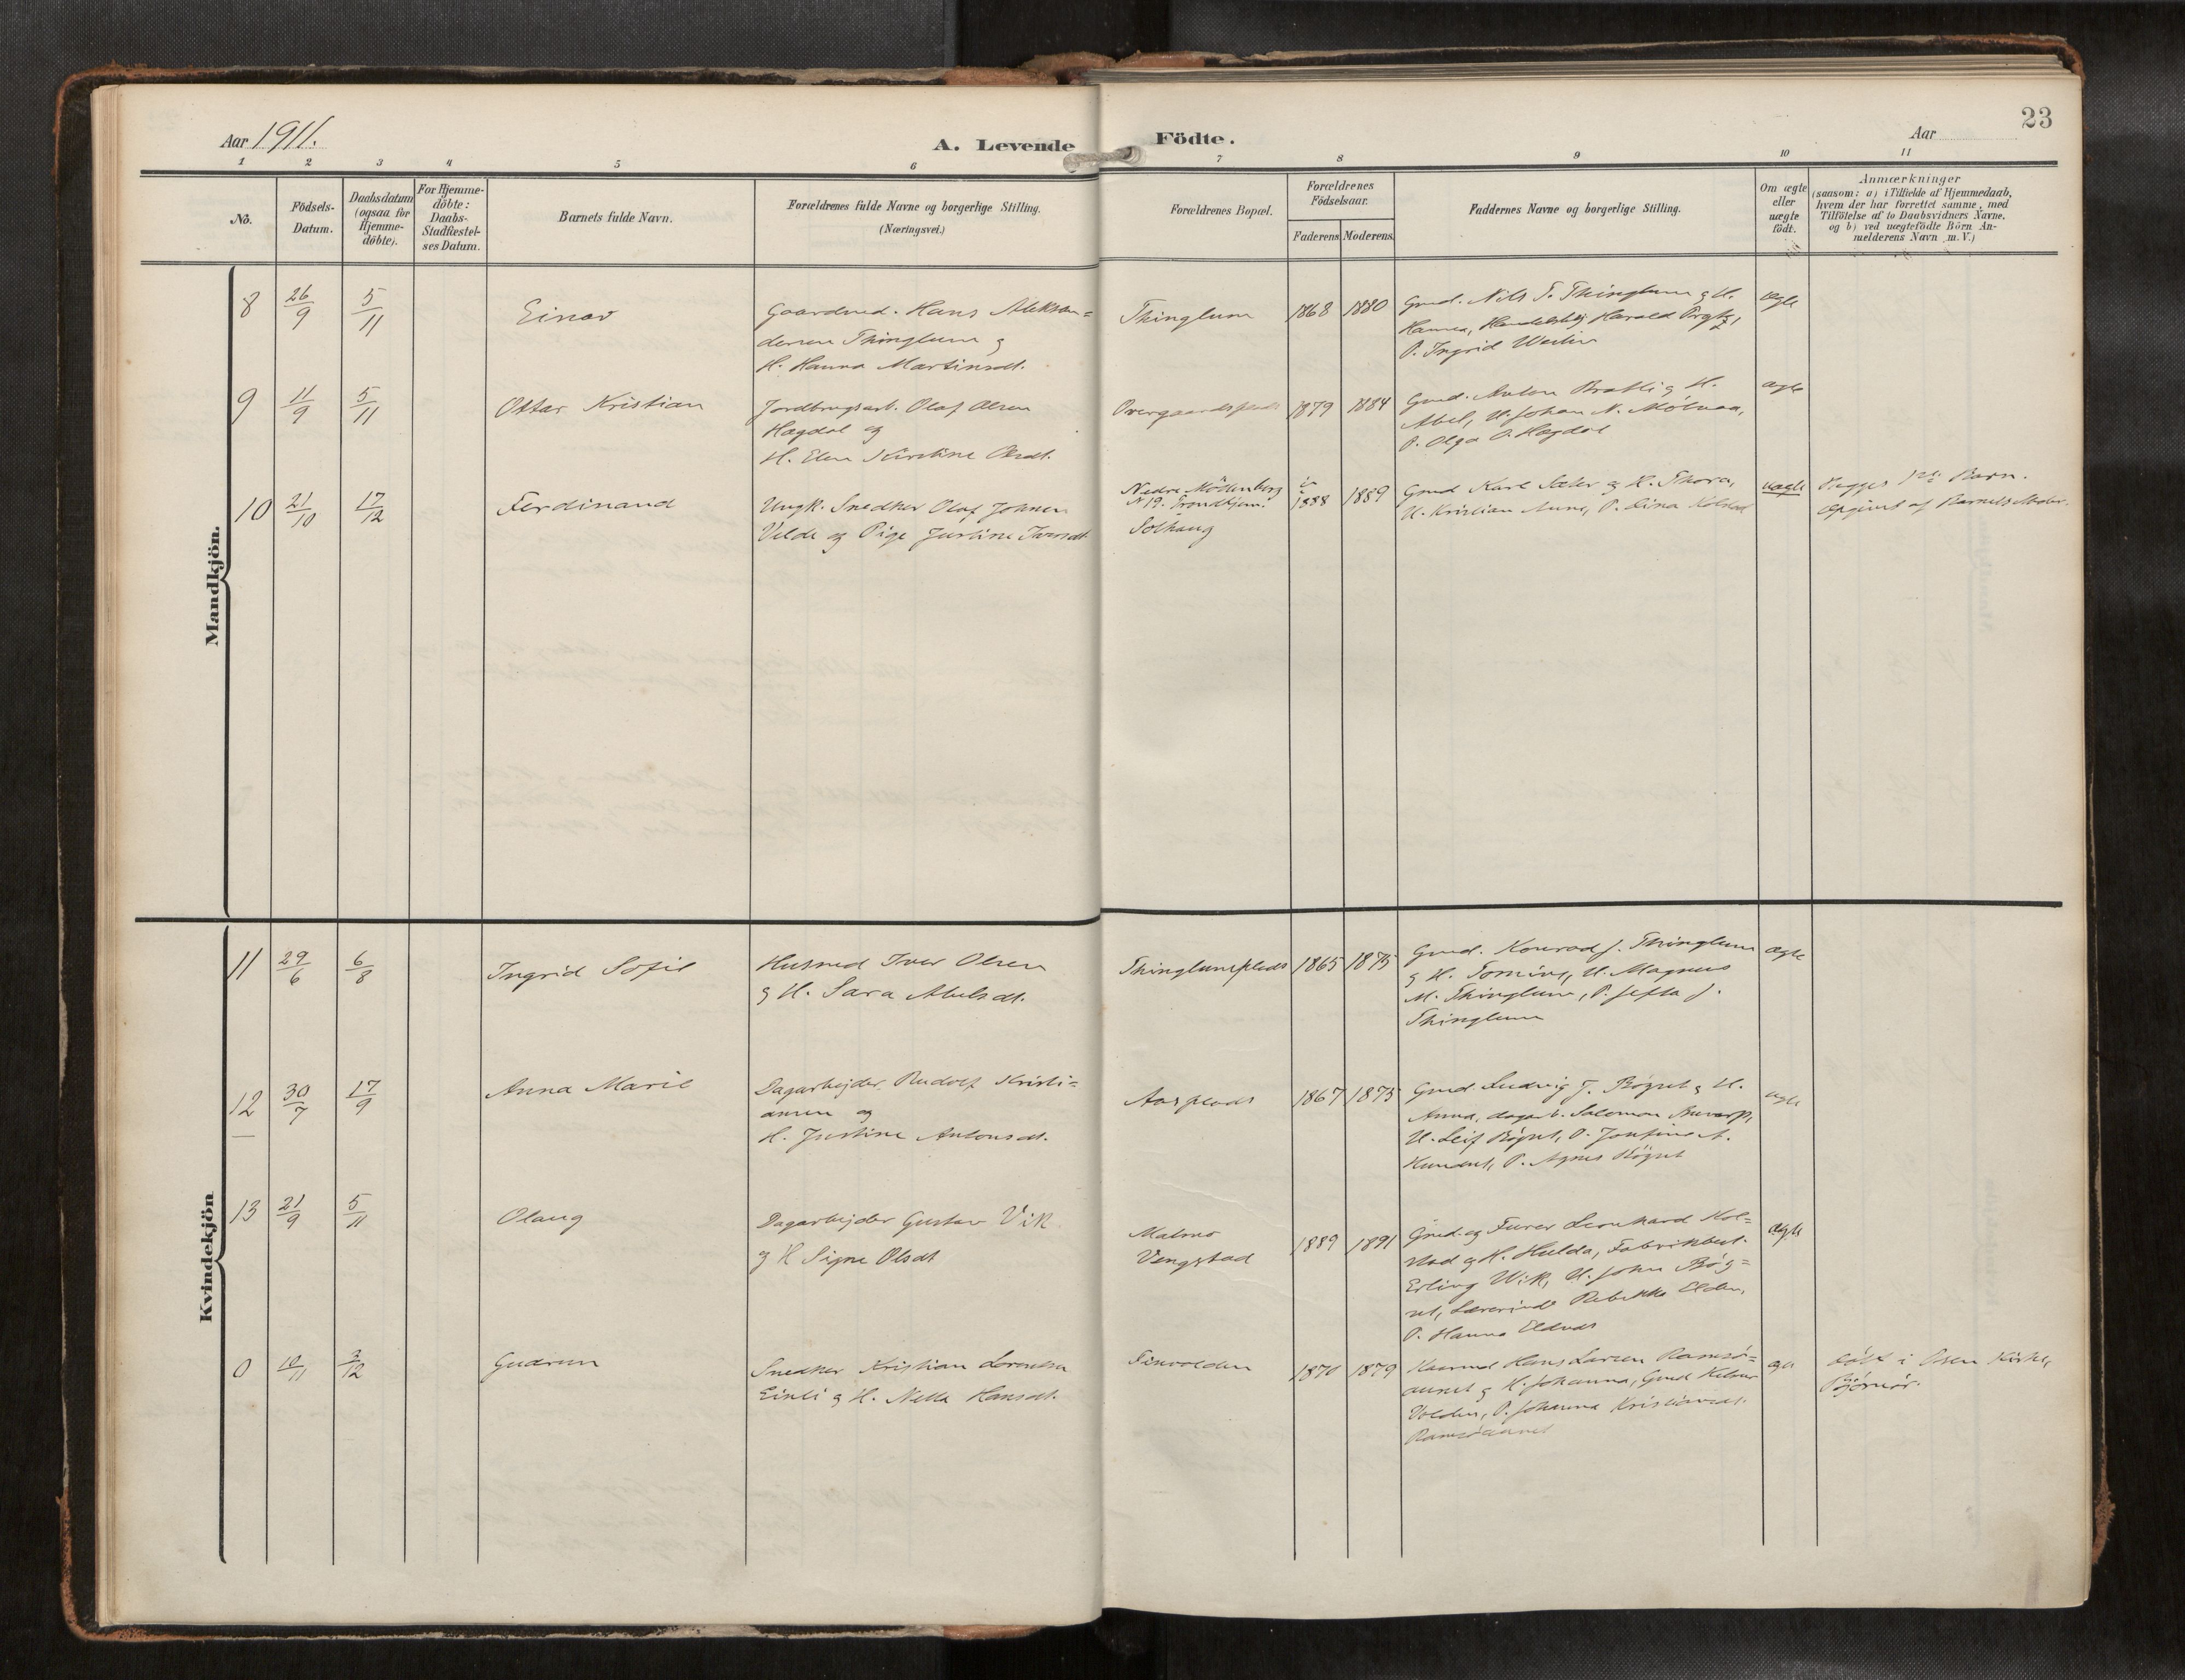 Aar 1911.
A. Levende Födte.
Aar
23
1 2 3 4 5 6 7 8 9 10 11
No.
Födsels-
Datum.
Daabsdatum
(ogsaa for
Hjemme-
döbte).
For Hjemme-
döbte:
Daabs-
Stadfæstel-
ses Datum.
Barnets fulde Navn.
Forældrenes fulde Navne og borgerlige Stilling.
(Næringsvei.)
Forældrenes Bopæl.
Forældrenes
Födselsaar.
Faderens Moderens
Faddernes Navne og borgerlige Stilling.
Om ægte
eller
uægte
födt.
Anmærkninger
(saasom: a) i Tilfælde af Hjemmedaab,
hvem der har forrettet samme, med
Tilföielse af to Daabsvidners Navne.
og b) ved uægtefödte Börn An-
melderens Navn m. V.)
Mandkjön.
8 26/9 5/11 Einar
Gaardmd. Hans Aleksan=
dersen Thinglum og
H. Hanna Martinsdt.
Thinglum 1868 1880
Gmd. Nils T. Thinglum og H.
Hanna, Harald
P. Ingrid
ægte
9 11/9 5/11 Ottar Kristian
Jordbrugsarb. Olaf Olsen
Hagdal og
H. Elen Kirstine Olsdt.
Overgaardsplads 1879 1884
Gmd. Anton Bratli og H.
Abel, U. Johan N.
P. Olga O. Hagdal
ægte
10 21/10 17/12 Ferdinand
Ungk. Snedker Olaf Johnsen
Velde og Pige Justine Iversdt.
Nedre Möllenberg
N 19. Trondhjem.
Solhaug
1888 1889
Gmd Karl Sæter og H. Thora,
U. Kristian Aune, P. Lina Kolstad
uægte
Begges 1ste Barn.
Opgivet af Barnets Moder.
Kvindekjön
11 29/6 6/8 Ingrid Sofie
Husmd Iver Olsen
og H. Sara Abelsdt.
Thinglumsplads 1865 1875
Gmd. Konrad J. Thinglum
og H. Tomine, U. Magnus
M. Thinglum, P. Jefta J.
Thinglum
ægte
12 30/7 17/9 Anna Marie
Dagarbejder Rudolf Kristi=
ansen og
H. Justine Antonsdt.
Aasplads 1867 1875
Gmd. Ludvig J. Bögset og H.
Anna, dagarb. Salomon
U. Leif Bögset, P.
P. Agnes Bögset
ægte
13 21/9 5/11 Olaug
Dagarbejder Gustav Vik
og H Signe Olsdt
Malmo
Vengstad
1889 1891
Gmd. og Furer Leonhard Kol=
stad og H. Hulda, Fabrikbest.
Erling Wik, U. John Bög=
set, Lærerinde Rebekka Elden,
P. Hanna
ægte
0 10/11 3/12 Gudrun
Snedker Kristian Lorentsen
Einli og H. Nella Hansdt.
Finvolden 1870 1879
Hans Larsen Ramsö=
aunet og H. Johanna, Gmd
Volden, P. Johanna Kristiansdt.
Ramsöaunet
ægte
Döbt i Osen Kirke,
Björnör.